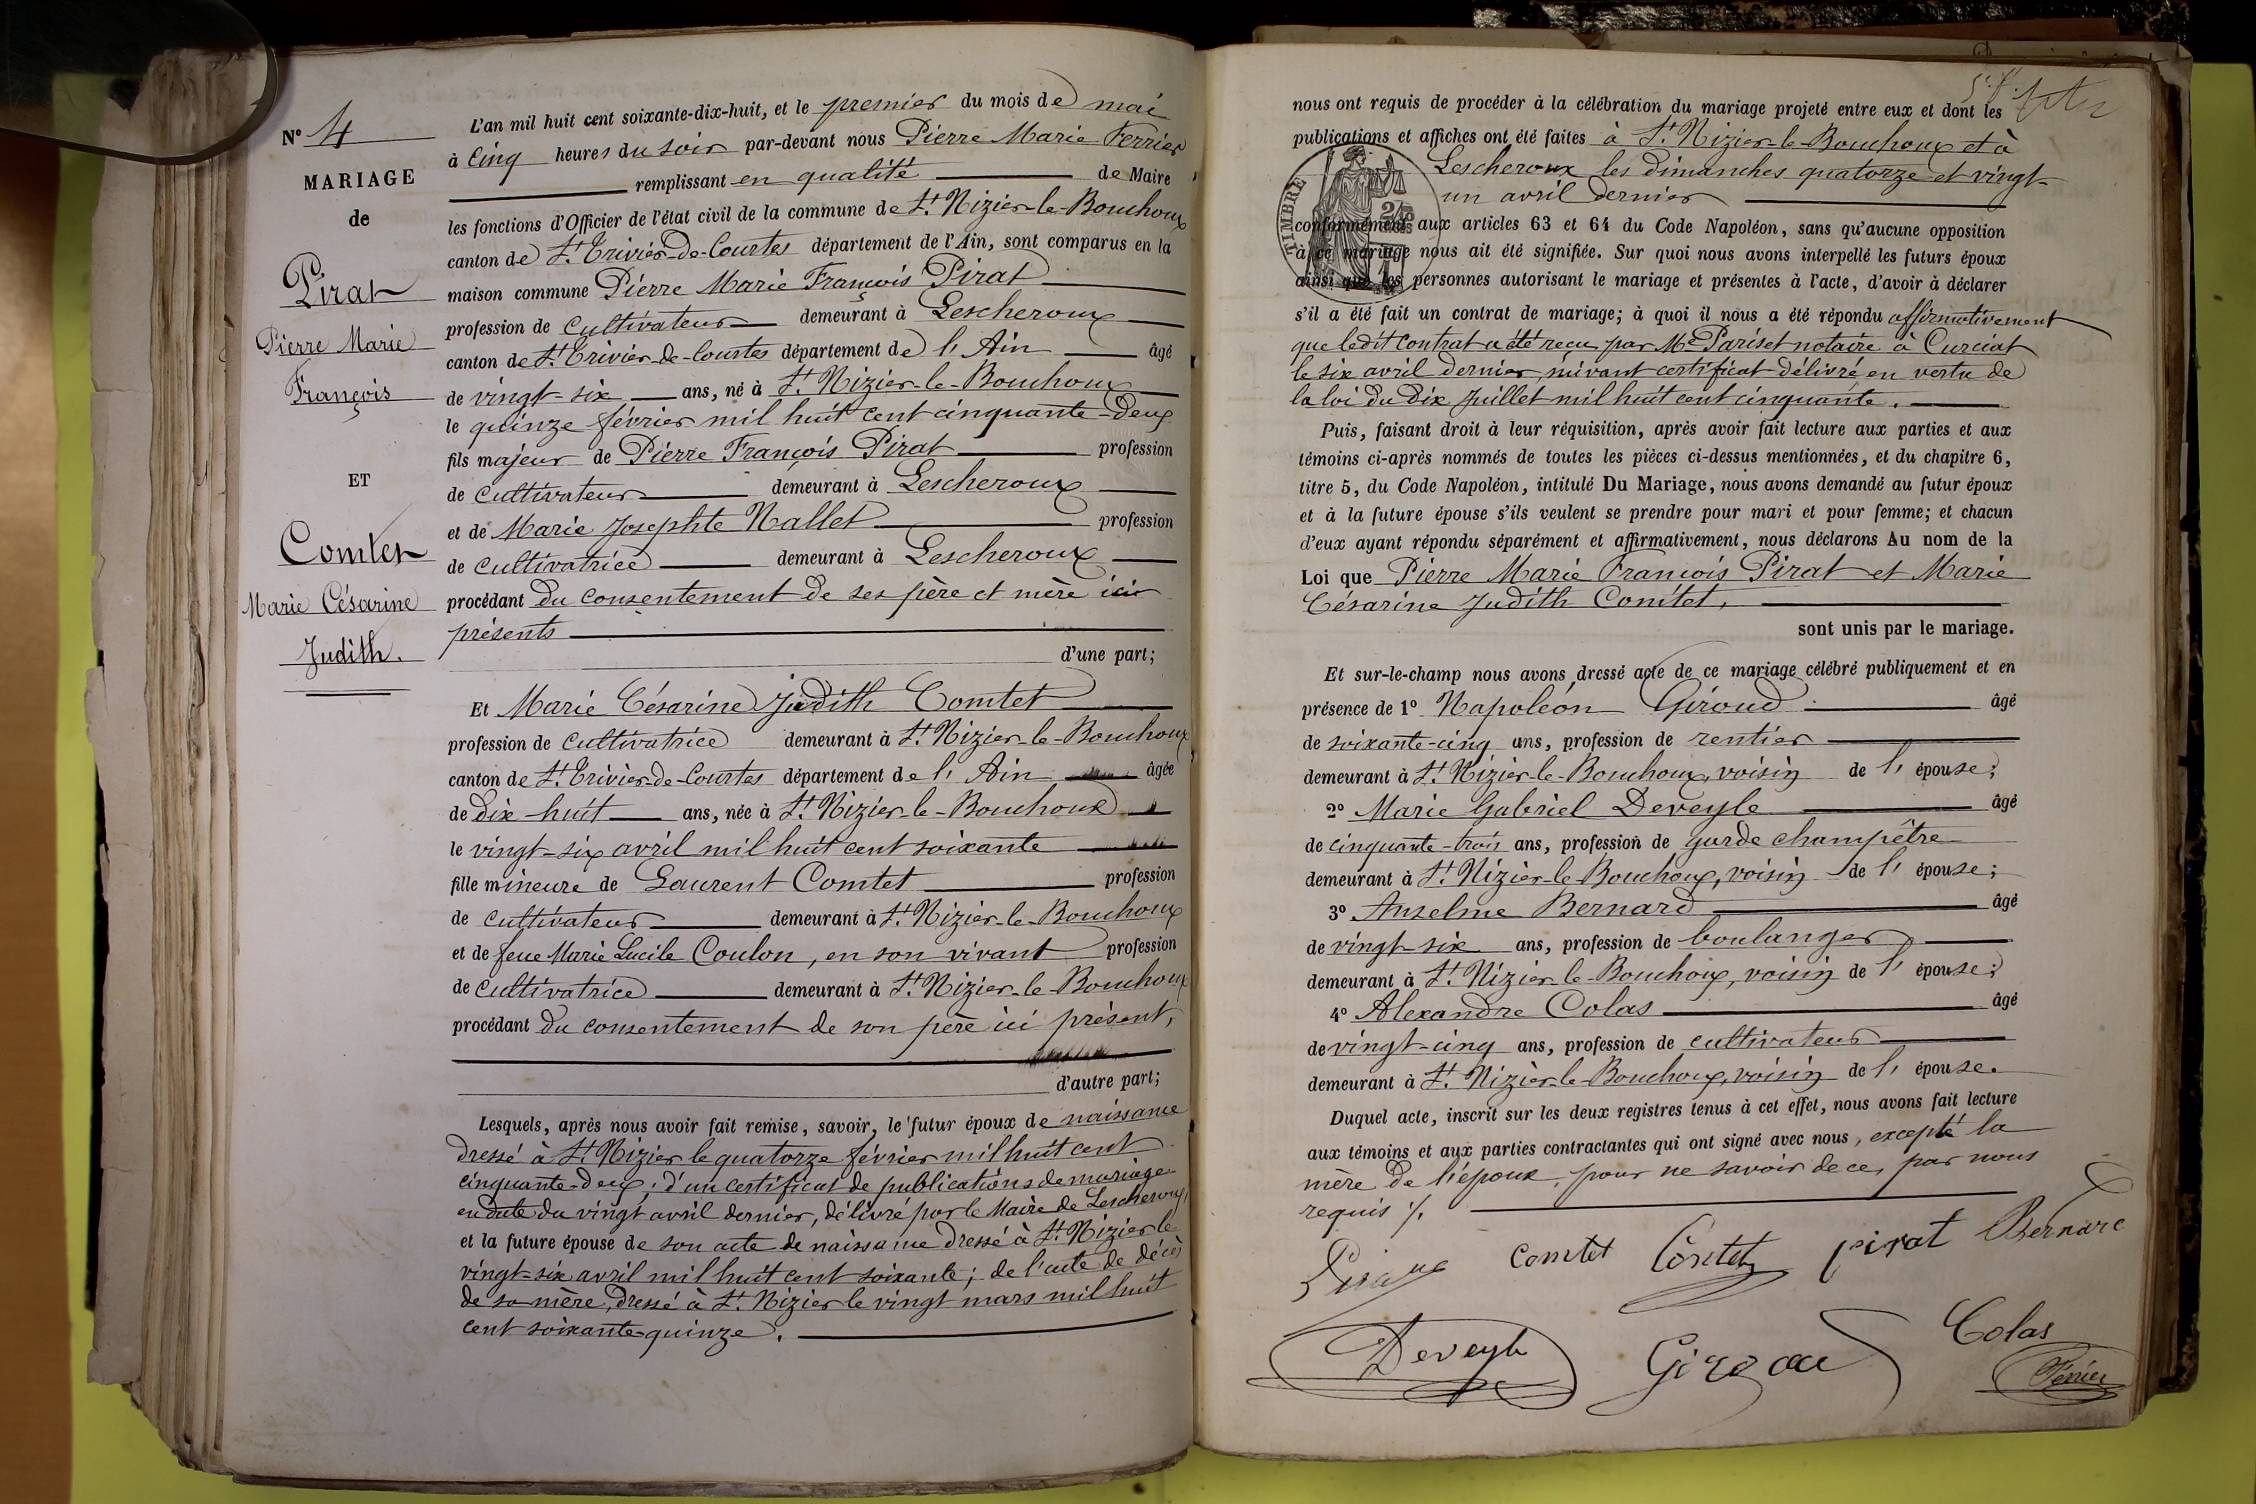 N° 4
MARIAGE
de
Pirat
Pierre Marie
François
ET
Comtet
Marie Césarine
Judith.
L'an mil huit cent soixante-dix-huit, et le premier du mois de mai
à cinq heures du soir par-devant nous Pierre Marie Ferrier
remplissant en qualité de Maire
les fonctions d'Officier de l'état civil de la commune de St Nizier-le-Bouchoux
canton de St Trivier-de-Courtes département de l'Ain, sont comparus en la
maison commune Pierre Marie François Pirat
profession de cultivateur demeurant à Lescheroux
canton de St Trivier-de-Courtes département de l'Ain âgé
de vingt-six ans, né à St Nizier-le-Bouchoux
le quinze février mil huit cent cinquante-deux
fils majeur de Pierre François Pirat profession
de cultivateur demeurant à Lescheroux
et de Marie Josephte Nallet profession
de cultivatrice demeurant à Lescheroux
procédant du consentement de ses père et mère ici
présents
d'une part;
Et Marie Césarine Judith Comtet
profession de cultivatrice demeurant à St Nizier-le-Bouchoux
canton de St Trivier-de-Courtes département de l'Ain âgée
de dix huit ans, née à St Nizier-le-Bouchoux
le vingt-six avril mil huit cent soixante
fille mineure de Laurent Comtet profession
de cultivateur demeurant à St Nizier-le-Bouchoux
et de feue Marie Lucile Coulon, en son vivant profession
de cultivatrice demeurant à St Nizier-le-Bouchoux
procédant du consentement de son père ici présent,
d'autre part;
Lesquels, après nous avoir fait remise, savoir, le futur époux de naissance
dressé à St Nizier le quatorze février mil huit cent
cinquante-deux; d'un certificat de publications de mariage
en date du vingt avril dernier, délivré par le Maire de Lescheroux,
et la future épouse de son acte de naissance dressé à St Nizier le
vingt-six avril mil huit cent soixante; de l'acte de décès
de sa mère, dressé à St Nizier le vingt mars mil huit
cent soixante-quinze.
nous ont requis de procéder à la célébration du mariage projeté entre eux et dont les
publications et affiches ont été faites à St Nizier-le-Bouchoux et à
Lescheroux les dimanches quatorze et vingt-
un avril dernier
TIMBRE
conformément aux articles 63 et 64 du Code Napoléon, sans qu'aucune opposition
à ce mariage nous ait été signifiée. Sur quoi nous avons interpellé les futurs époux
ainsi que les personnes autorisant le mariage et présentes à l'acte, d'avoir à déclarer
s'il a été fait un contrat de mariage; à quoi il nous a été répondu affirmativement
que ledit contrat a été reçu par Me Pariset notaire à Curciat
le six avril dernier, suivant certificat délivré en vertu de
la loi du dix juillet mil huit cent cinquante.
Puis, faisant droit à leur réquisition, après avoir fait lecture aux parties et aux
témoins ci-après nommés de toutes les pièces ci-dessus mentionnées, et du chapitre 6,
titre 5, du Code Napoléon, intitulé Du Mariage, nous avons demandé au futur époux
et à la future épouse s'ils veulent se prendre pour mari et pour femme; et chacun
d'eux ayant répondu séparément et affirmativement, nous déclarons Au nom de la
Loi que Pierre Marie François Pirat et Marie
Césarine Judith Comtet,
sont unis par le mariage.
Et sur-le-champ nous avons dressé acte de ce mariage célébré publiquement et en
présence de 1° Napoléon Giroud âgé
de soixante-cinq ans, profession de rentier
demeurant à St Nizier-le-Bouchoux, voisin de l'épouse;
2° Marie Gabriel Deveyle âgé
de cinquante-trois ans, profession de garde champêtre
demeurant à St Nizier-le-Bouchoux, voisin de l'épouse;
3° Anselme Bernard âgé
de vingt-six ans, profession de boulanger
demeurant à St Nizier-le-Bouchoux, voisin de l'épouse;
4° Alexandre Colas âgé
de vingt-cinq ans, profession de cultivateur
demeurant à St Nizier-le-Bouchoux, voisin de l'épouse.
Duquel acte, inscrit sur les deux registres tenus à cet effet, nous avons fait lecture
aux témoins et aux parties contractantes qui ont signé avec nous, excepté la
mère de l'époux, pour ne savoir de ce, par nous
requis ./.
comtet Comtet pirat Bernard
Deveyle Giroud Colas
Ferrier